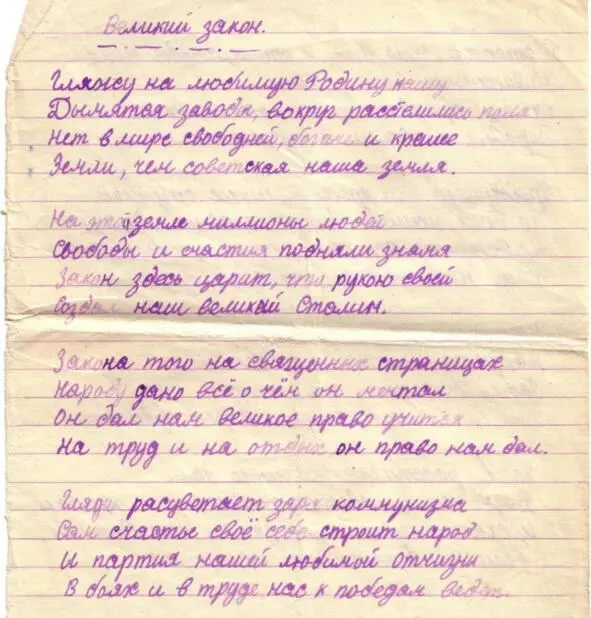 Великий закон.
Гляжу на любимую Родину нашу
Дымятся заводы, вокруг расстелились поля
Нет в мире свободней, богаче и краше
Земли, чем советская наша земля.
На этой земле миллионы людей
Свободы и счастия подняли знамя
Закон здесь царит, что рукою своей
Создал наш великий Сталин.
Закона того на священных страницах
Народу дано всё о чём он мечтал
Он дал нам великое право учится
На труд и на отдых он право нам дал.
Гляди расцветает заря коммунизма
Сам счастье своё себе строит народ
И партия нашей любимой отчизни
В боях и в труде нас к победам ведет.